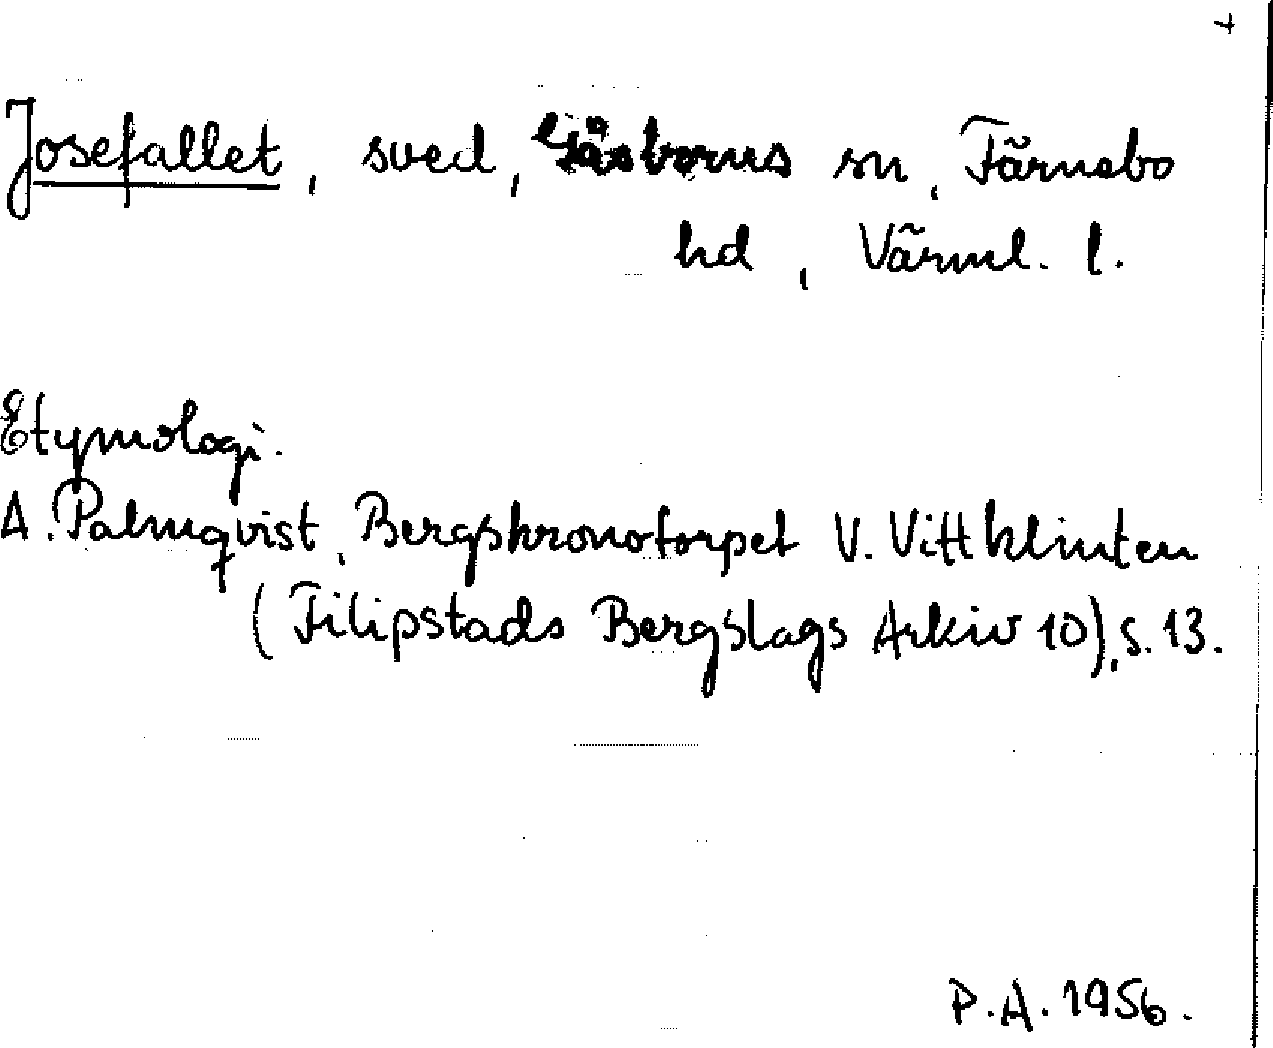 Josefallet, sved, Gåsborns sn, Färnebo
hd, Värml. l.
Etymologi.
A. Palmqvist, Bergskronotorpet V. Vittklinten
(Filipstads Bergslags Arkiv 10), s. 13.
P.A. 1956.